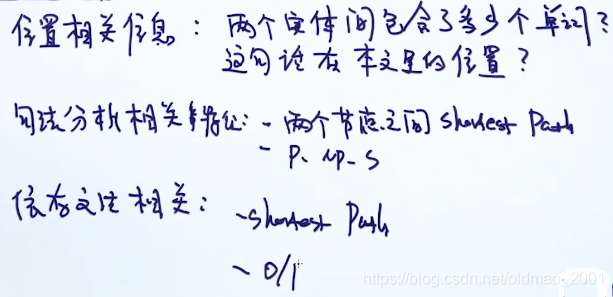 位置相关信息： 两个实体间包含了多少个单词？
这句话在本文里的位置？
句法分析相关特征: - 两个节点之间 shortest Path
- P- NP- S
依存文法相关： - shortest Path
- 0/1
https://blog.csdn.net/oldmao_2001